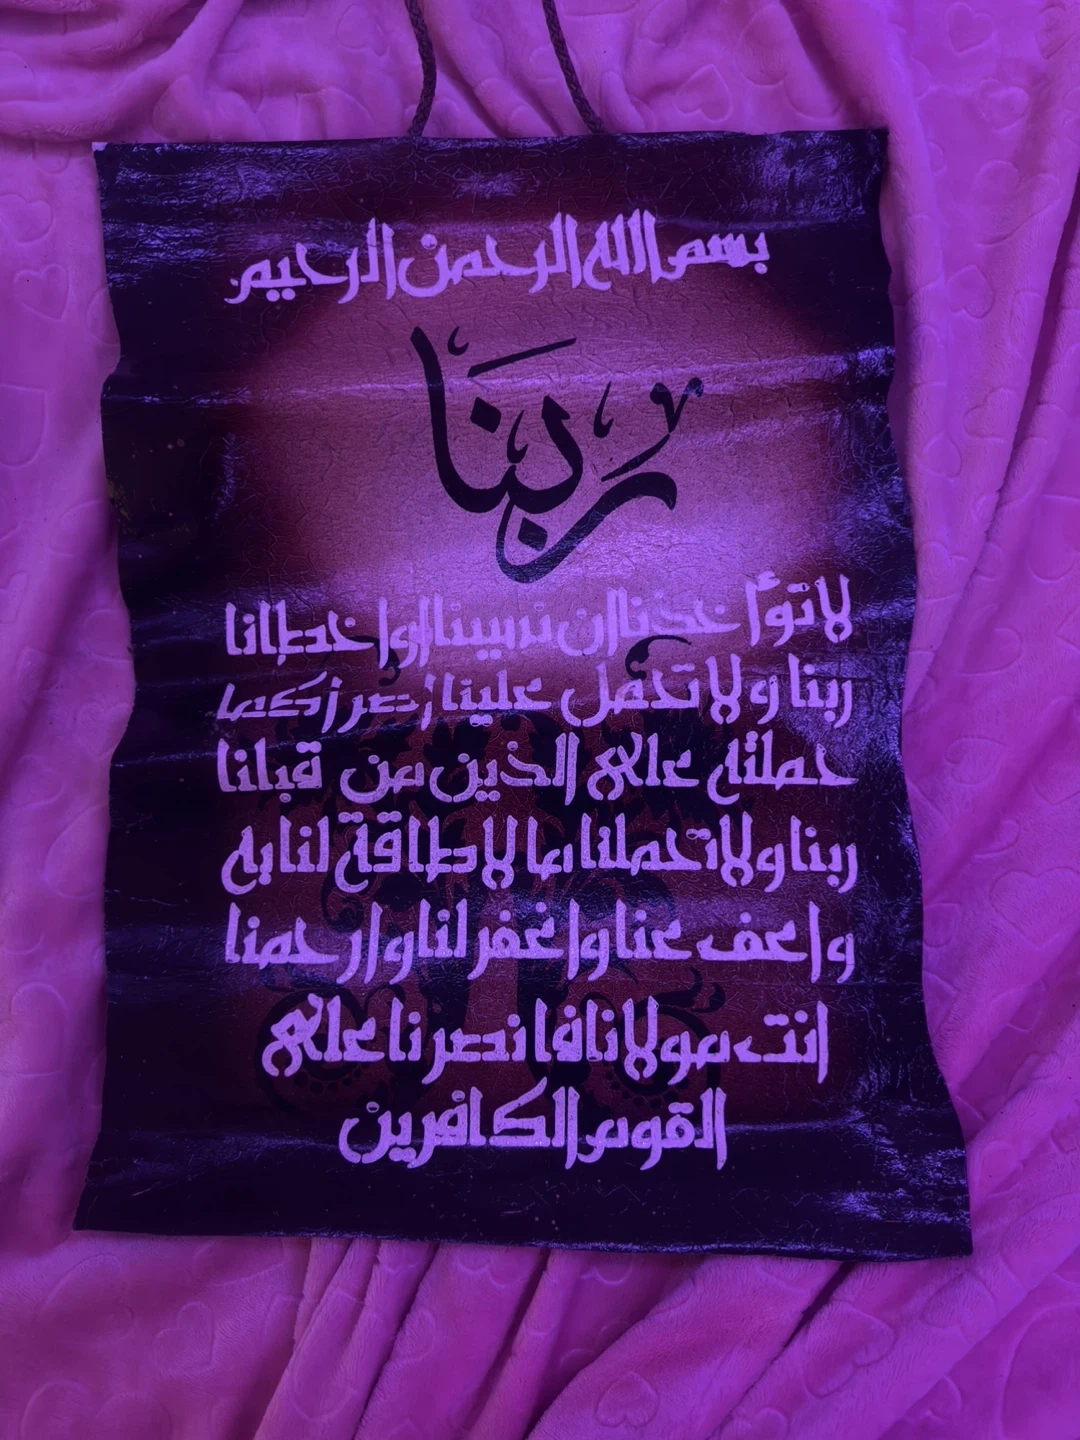 بسم الله الرحمن الرحيم
ربنا
لا تؤاخذنا ان نسينا او اخطانا
ربنا ولا تحمل علينا اصرا كما
حملته على الذين من قبلنا
ربنا ولا تحملنا ما لا طاقة لنا به
واعف عنا واغفر لنا وارحمنا
انت مولانا فانصرنا على
القوم الكافرين